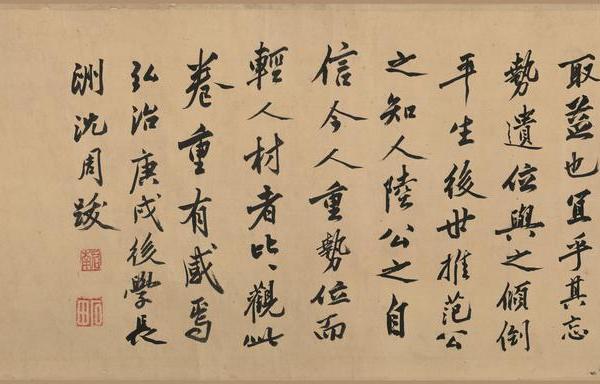 取益也宜乎其忘
勢遺位與之傾倒
平生後世推范公
之知人陸公之自
信今人重勢位而
輕人材者比〻觀此
卷重有感焉
弘治庚戌後學長
洲沈周跋